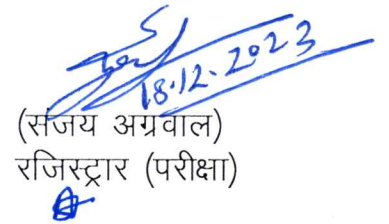 18.12.2023
(संजय अग्रवाल)
रजिस्ट्रार (परीक्षा)